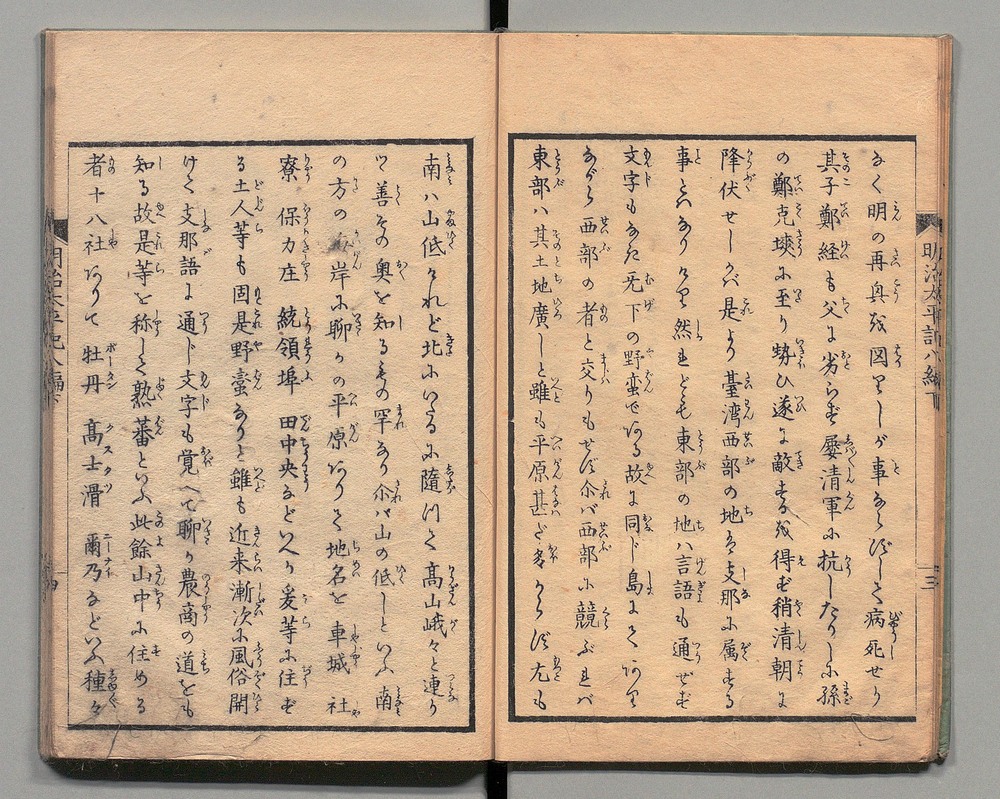 なく明の再興を図りしが事ならずして病死せり
其子鄭經も父に劣らず屡清軍に抗したりしに孫
の鄭克塽に至り勢ひ遂に敵する を得ず稍清朝に
降伏せしかば是より臺湾西部の地は支那に属する
事とはなりけり然れども東部の地ハ言語も通ぜず
文字もなき无下の野蛮である故に同じ島にて ありな
がら西部の者と交りもせず尒バ西部に競ぶれバ
東部ハ其土地廣しと雖も平原甚だ多からず尤も
明治太平記八編下
三
南ハ山低けれど北にいたるに隨つて高山峨々と連り
て善その奥を知るもの罕なり尒バ山の低しといふ南
の方の 岸に聊かの平原ありて地名を 車城 社
寮 保力庄 統領埔 田中央などいへり爰等に住む
る土人等も固是野蛮なりと雖も近来漸次に風俗開
けて支那語に通じ文字も覚へて聊か農商の道をも
知る故是等を称して熟蕃といふ此餘山中に住める
者十八社ありて 牡丹 高士滑 爾乃などいふ種々
明治太平記八編下
四